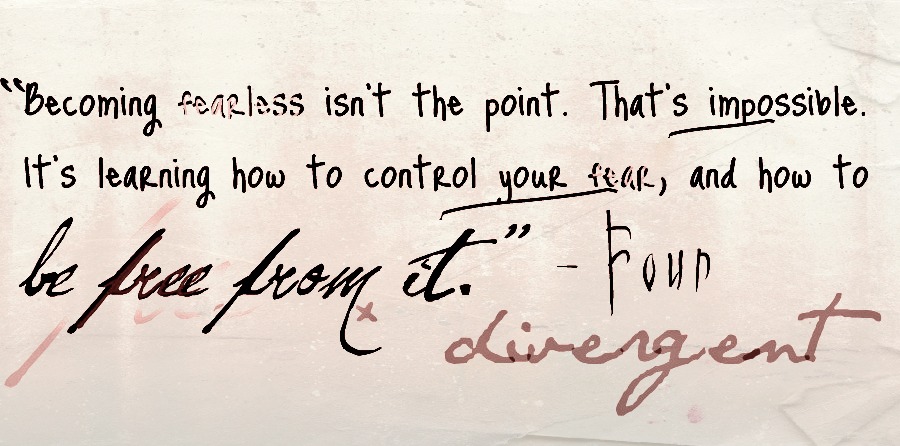 “Becoming fearless isn't the point. That's impossible.
It's learning how to control your fear, and how to
be free from it.” - Four
divergent